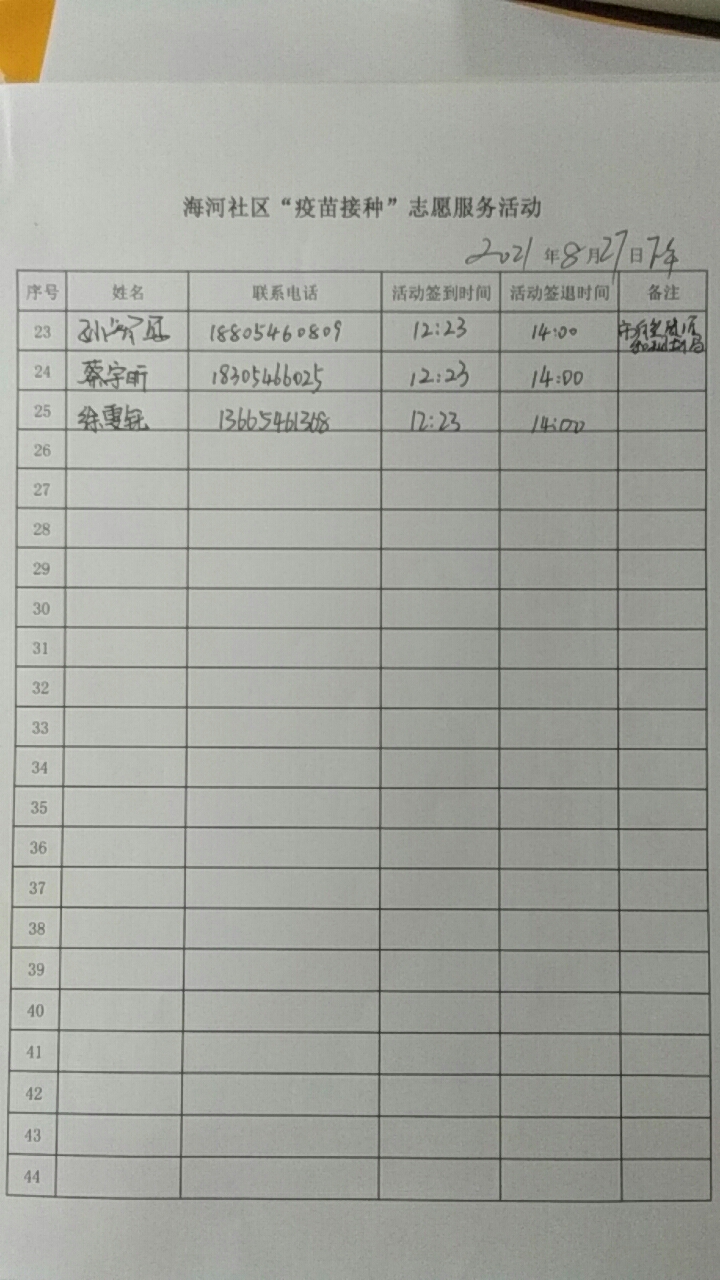 海河社区“疫苗接种”志愿服务活动
2021年8月27日下午
序号 姓名 联系电话 活动签到时间 活动签退时间 备注
23 孙 18805460809 12:23 14:00
24 蔡宇昕 18305466025 12:23 14:00
25 徐雯钰 13665461368 12:23 14:00
26
27
28
29
30
31
32
33
34
35
36
37
38
39
40
41
42
43
44